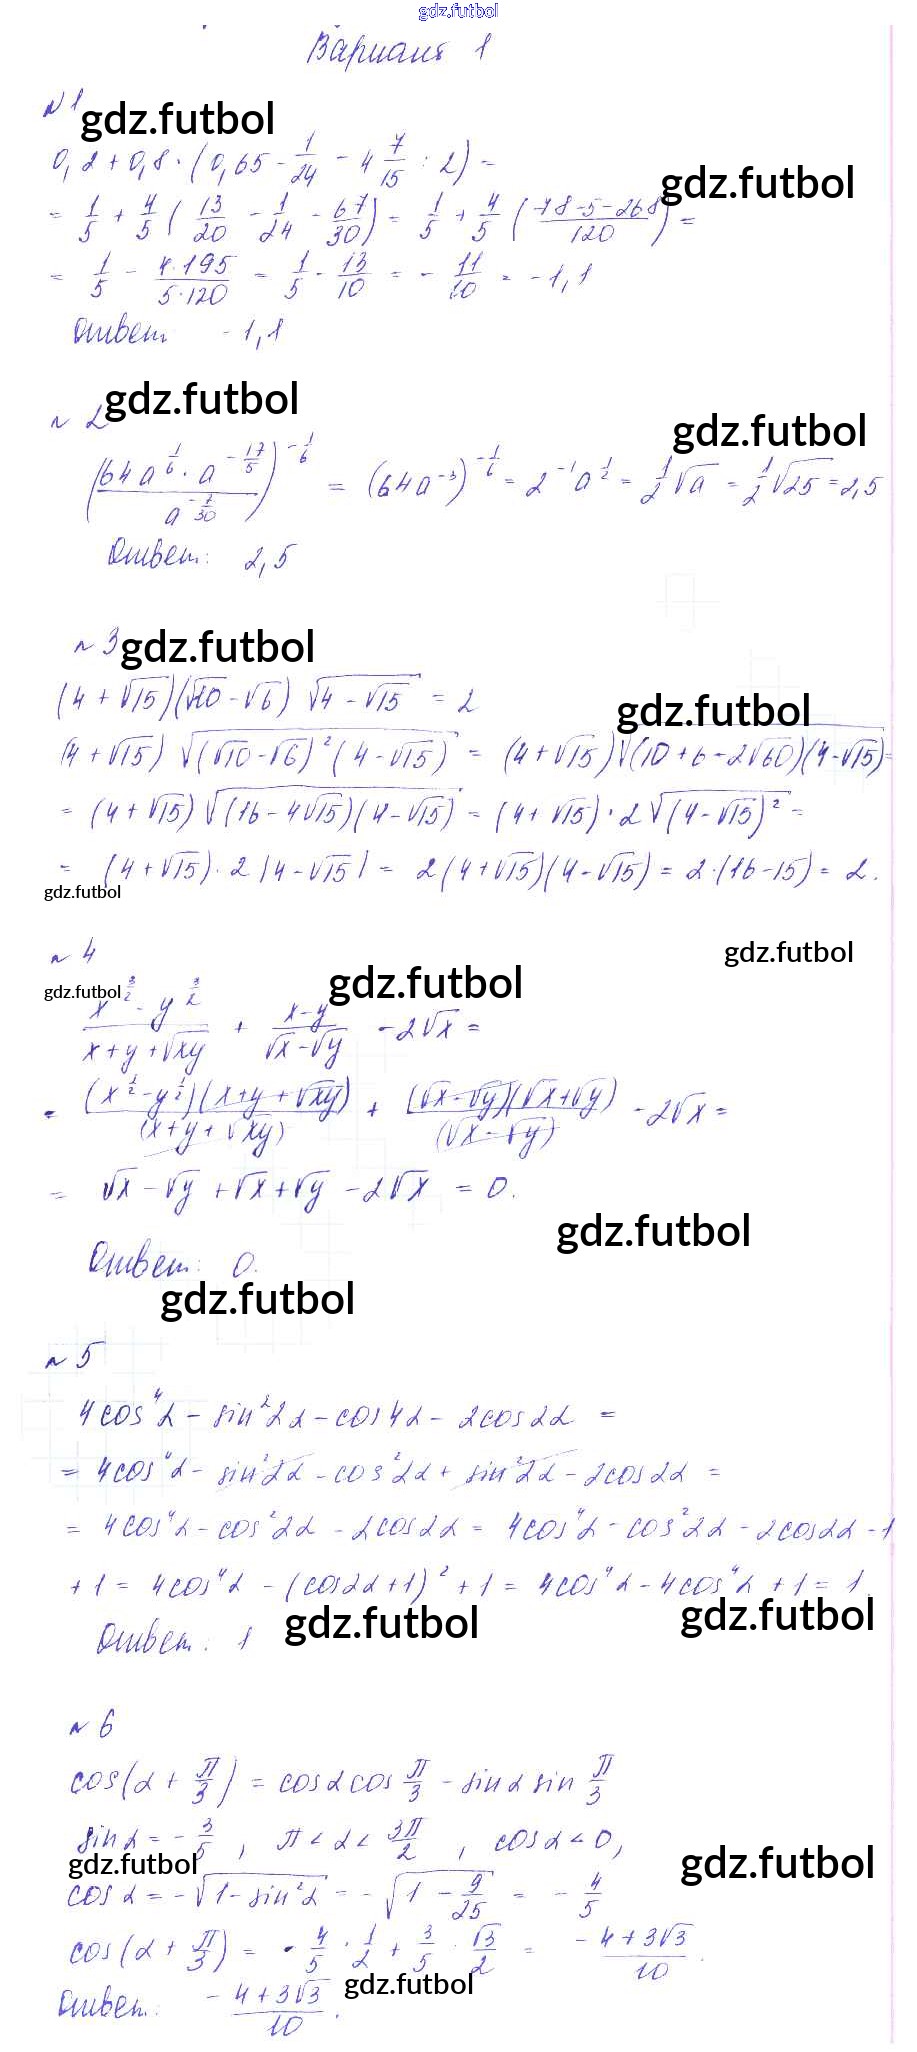 gdz.futbol
Вариант 1
№ 1 gdz.futbol
0,2 + 0,8 · (0,65 - 1/24 - 4 7/15 : 2) =
gdz.futbol
= 1/5 + 4/5 (13/20 - 1/24 - 67/30) = 1/5 + 4/5 ((78-5-268)/120) =
= 1/5 - (4·195)/(5·120) = 1/5 - 13/10 = - 11/10 = -1,1
Ответ: -1,1
№ 2 gdz.futbol
gdz.futbol
((64a^(1/6) · a^(-17/5))/(a^(-7/30)))^(-1/6) = (64a^(-3))^(-1/6) = 2^(-1)a^(1/2) = 1/2 √a = 1/2 √25 = 2,5
Ответ: 2,5
№ 3 gdz.futbol
(4 + √15)(√10 - √6) √(4 - √15) = 2
gdz.futbol
(4 + √15) √((√10 - √6)²(4 - √15)) = (4 + √15)√((10 + 6 - 2√60)(4 - √15)) =
= (4 + √15) √((16 - 4√15)(4 - √15)) = (4 + √15) · 2√((4 - √15)²) =
= (4 + √15) · 2 |4 - √15| = 2(4 + √15)(4 - √15) = 2·(16 - 15) = 2.
gdz.futbol
№ 4
gdz.futbol
gdz.futbol gdz.futbol
(x^(3/2) - y^(3/2))/(x + y + √xy) + (x - y)/(√x - √y) - 2√x =
= ((x^(1/2) - y^(1/2))(x + y + √xy))/(x + y + √xy) + ((√x - √y)(√x + √y))/(√x - √y) - 2√x =
= √x - √y + √x + √y - 2√x = 0.
gdz.futbol
Ответ: 0.
gdz.futbol
№ 5
4cos⁴α - sin²2α - cos4α - 2cos2α =
= 4cos⁴α - sin²2α - cos²2α + sin²2α - 2cos2α =
= 4cos⁴α - cos²2α - 2cos2α = 4cos⁴α - cos²2α - 2cos2α - 1
+ 1 = 4cos⁴α - (cos2α + 1)² + 1 = 4cos⁴α - 4cos⁴α + 1 = 1.
gdz.futbol gdz.futbol
Ответ: 1
№ 6
cos(α + π/3) = cosα cos π/3 - sinα sin π/3
sinα = - 3/5 , π < α < 3π/2 , cosα < 0,
gdz.futbol gdz.futbol
cosα = -√(1 - sin²α) = -√(1 - 9/25) = - 4/5
cos(α + π/3) = - 4/5 · 1/2 + 3/5 · √3/2 = (-4 + 3√3)/10.
gdz.futbol
Ответ: (-4 + 3√3)/10.